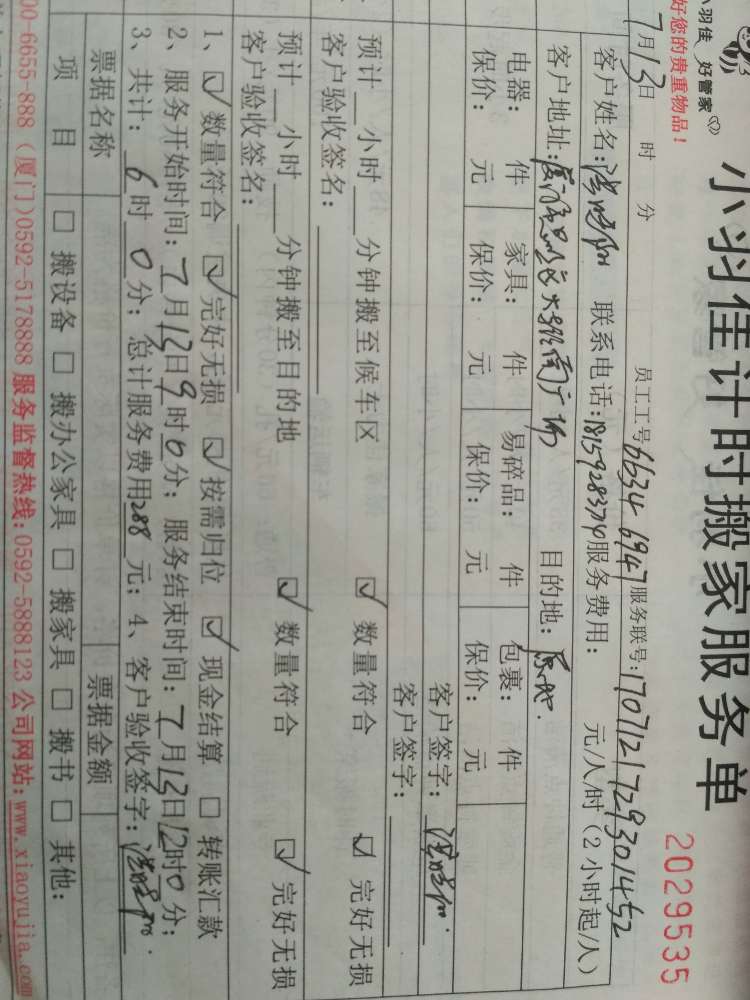 小羽佳 好管家
好您的贵重物品！
小羽佳计时搬家服务单
2029535
7月13日 时 分 员工工号6634 6947服务联号:1707121729301452
客户姓名: 联系电话:18159283740服务费用: 元/人/时（2小时起/人）
客户地址: 南广场 目的地:原地.
电器: 件 家具: 件 易碎品: 件 包裹: 件
保价: 元 保价: 元 保价: 元 保价: 元
客户签字:
客户签字:
预计__小时__分钟搬至候车区 ☑ 数量符合 ☑ 完好无损
客户验收签名:
预计__小时__分钟搬至目的地 ☑ 数量符合 ☑ 完好无损
客户验收签名:
1、☑ 数量符合 ☑ 完好无损 ☑ 按需归位 ☑ 现金结算 □ 转账汇款
2、服务开始时间:7月13日9时0分; 服务结束时间:7月13日12时0分;
3、共计: 6时 0分; 总计服务费用288元; 4、客户验收签字:
票据名称 票据金额
项 目 □ 搬设备 □ 搬办公家具 □ 搬家具 □ 搬书 □ 其他:
00-6655-888（厦门)0592-5178888 服务监督热线:0592-5888123 公司网站:www.xiaoyujia.com